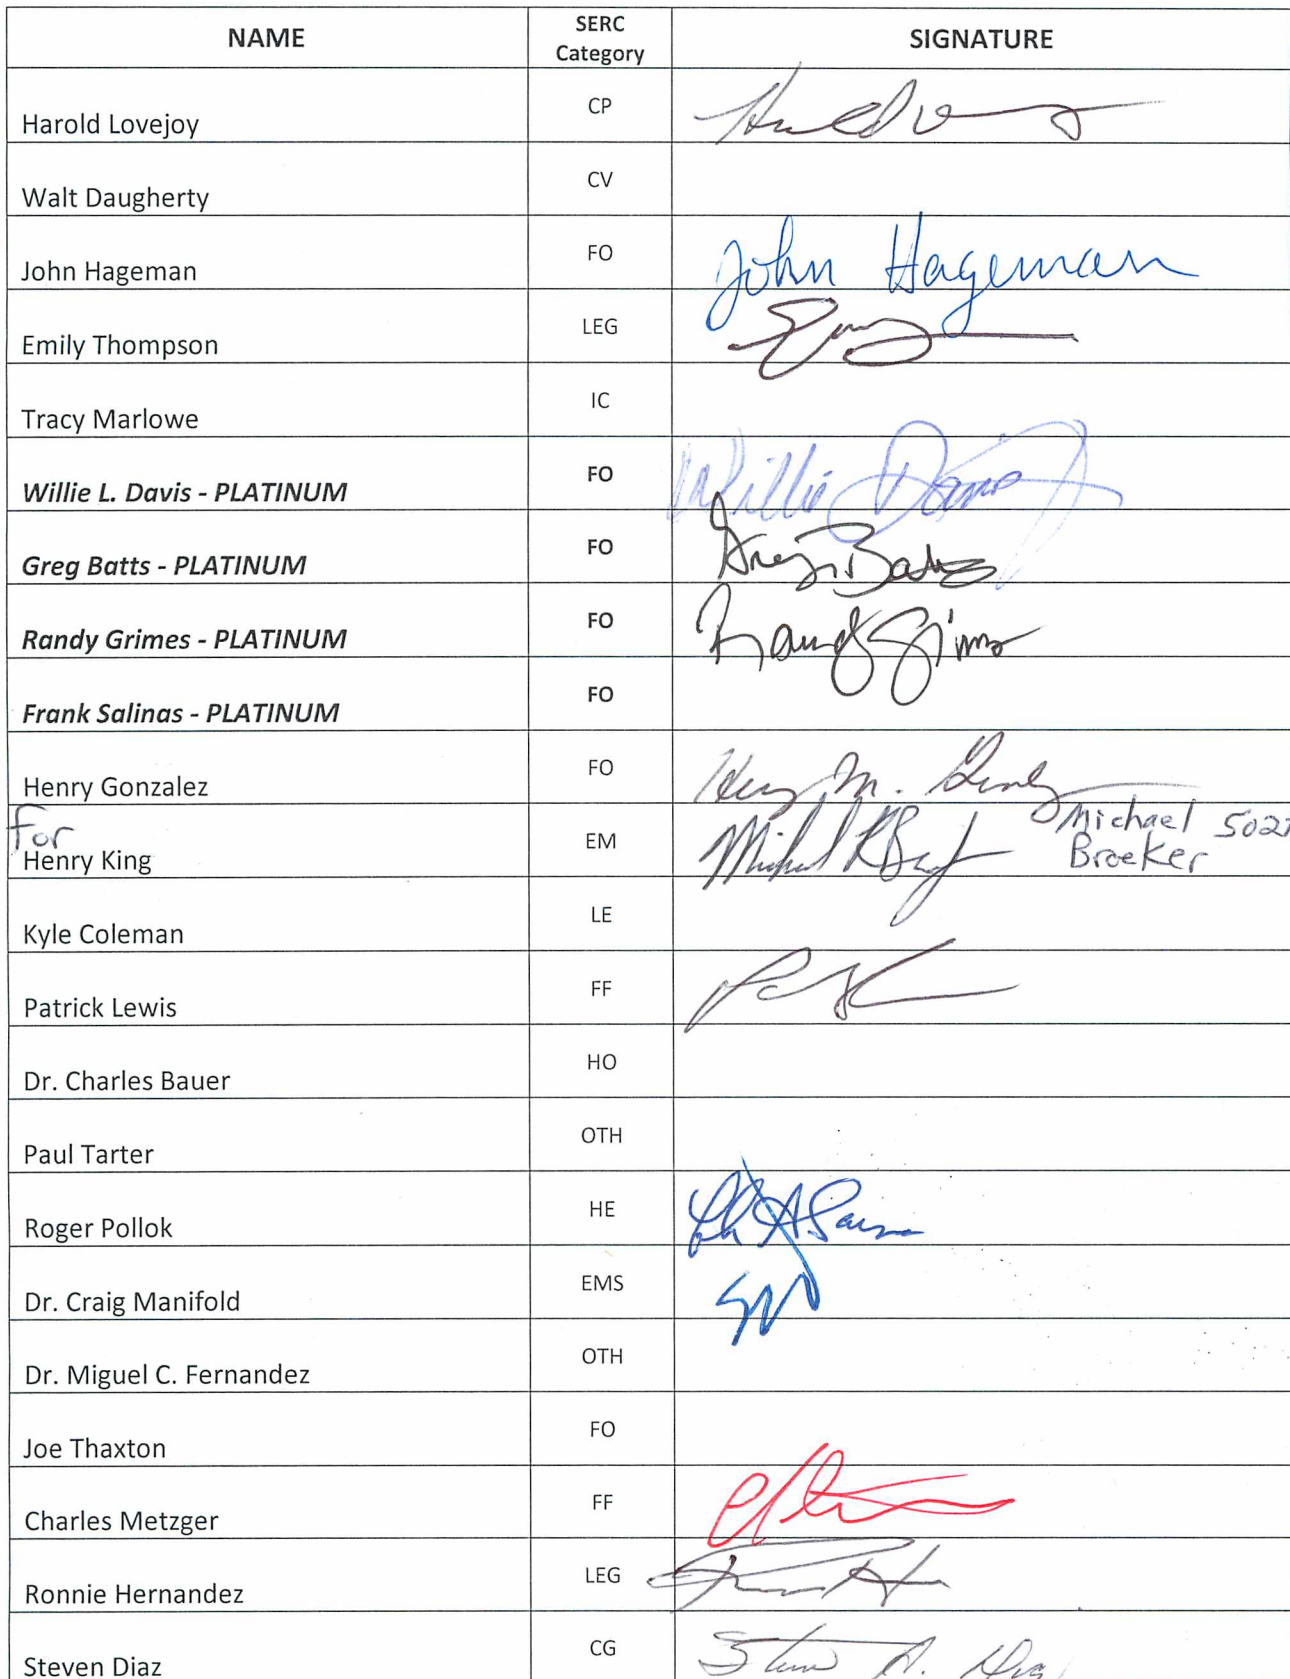 NAME SERC Category SIGNATURE
Harold Lovejoy CP
Walt Daugherty CV
John Hageman FO John Hageman
Emily Thompson LEG
Tracy Marlowe IC
Willie L. Davis - PLATINUM FO Willie Davis
Greg Batts - PLATINUM FO Greg Batts
Randy Grimes - PLATINUM FO Randy Grimes
Frank Salinas - PLATINUM FO
Henry Gonzalez FO Henry M.
for
Henry King EM Michael Michael 502
Broeker
Kyle Coleman LE
Patrick Lewis FF
Dr. Charles Bauer HO
Paul Tarter OTH
Roger Pollok HE
Dr. Craig Manifold EMS
Dr. Miguel C. Fernandez OTH
Joe Thaxton FO
Charles Metzger FF
Ronnie Hernandez LEG
Steven Diaz CG Steven A. Diaz